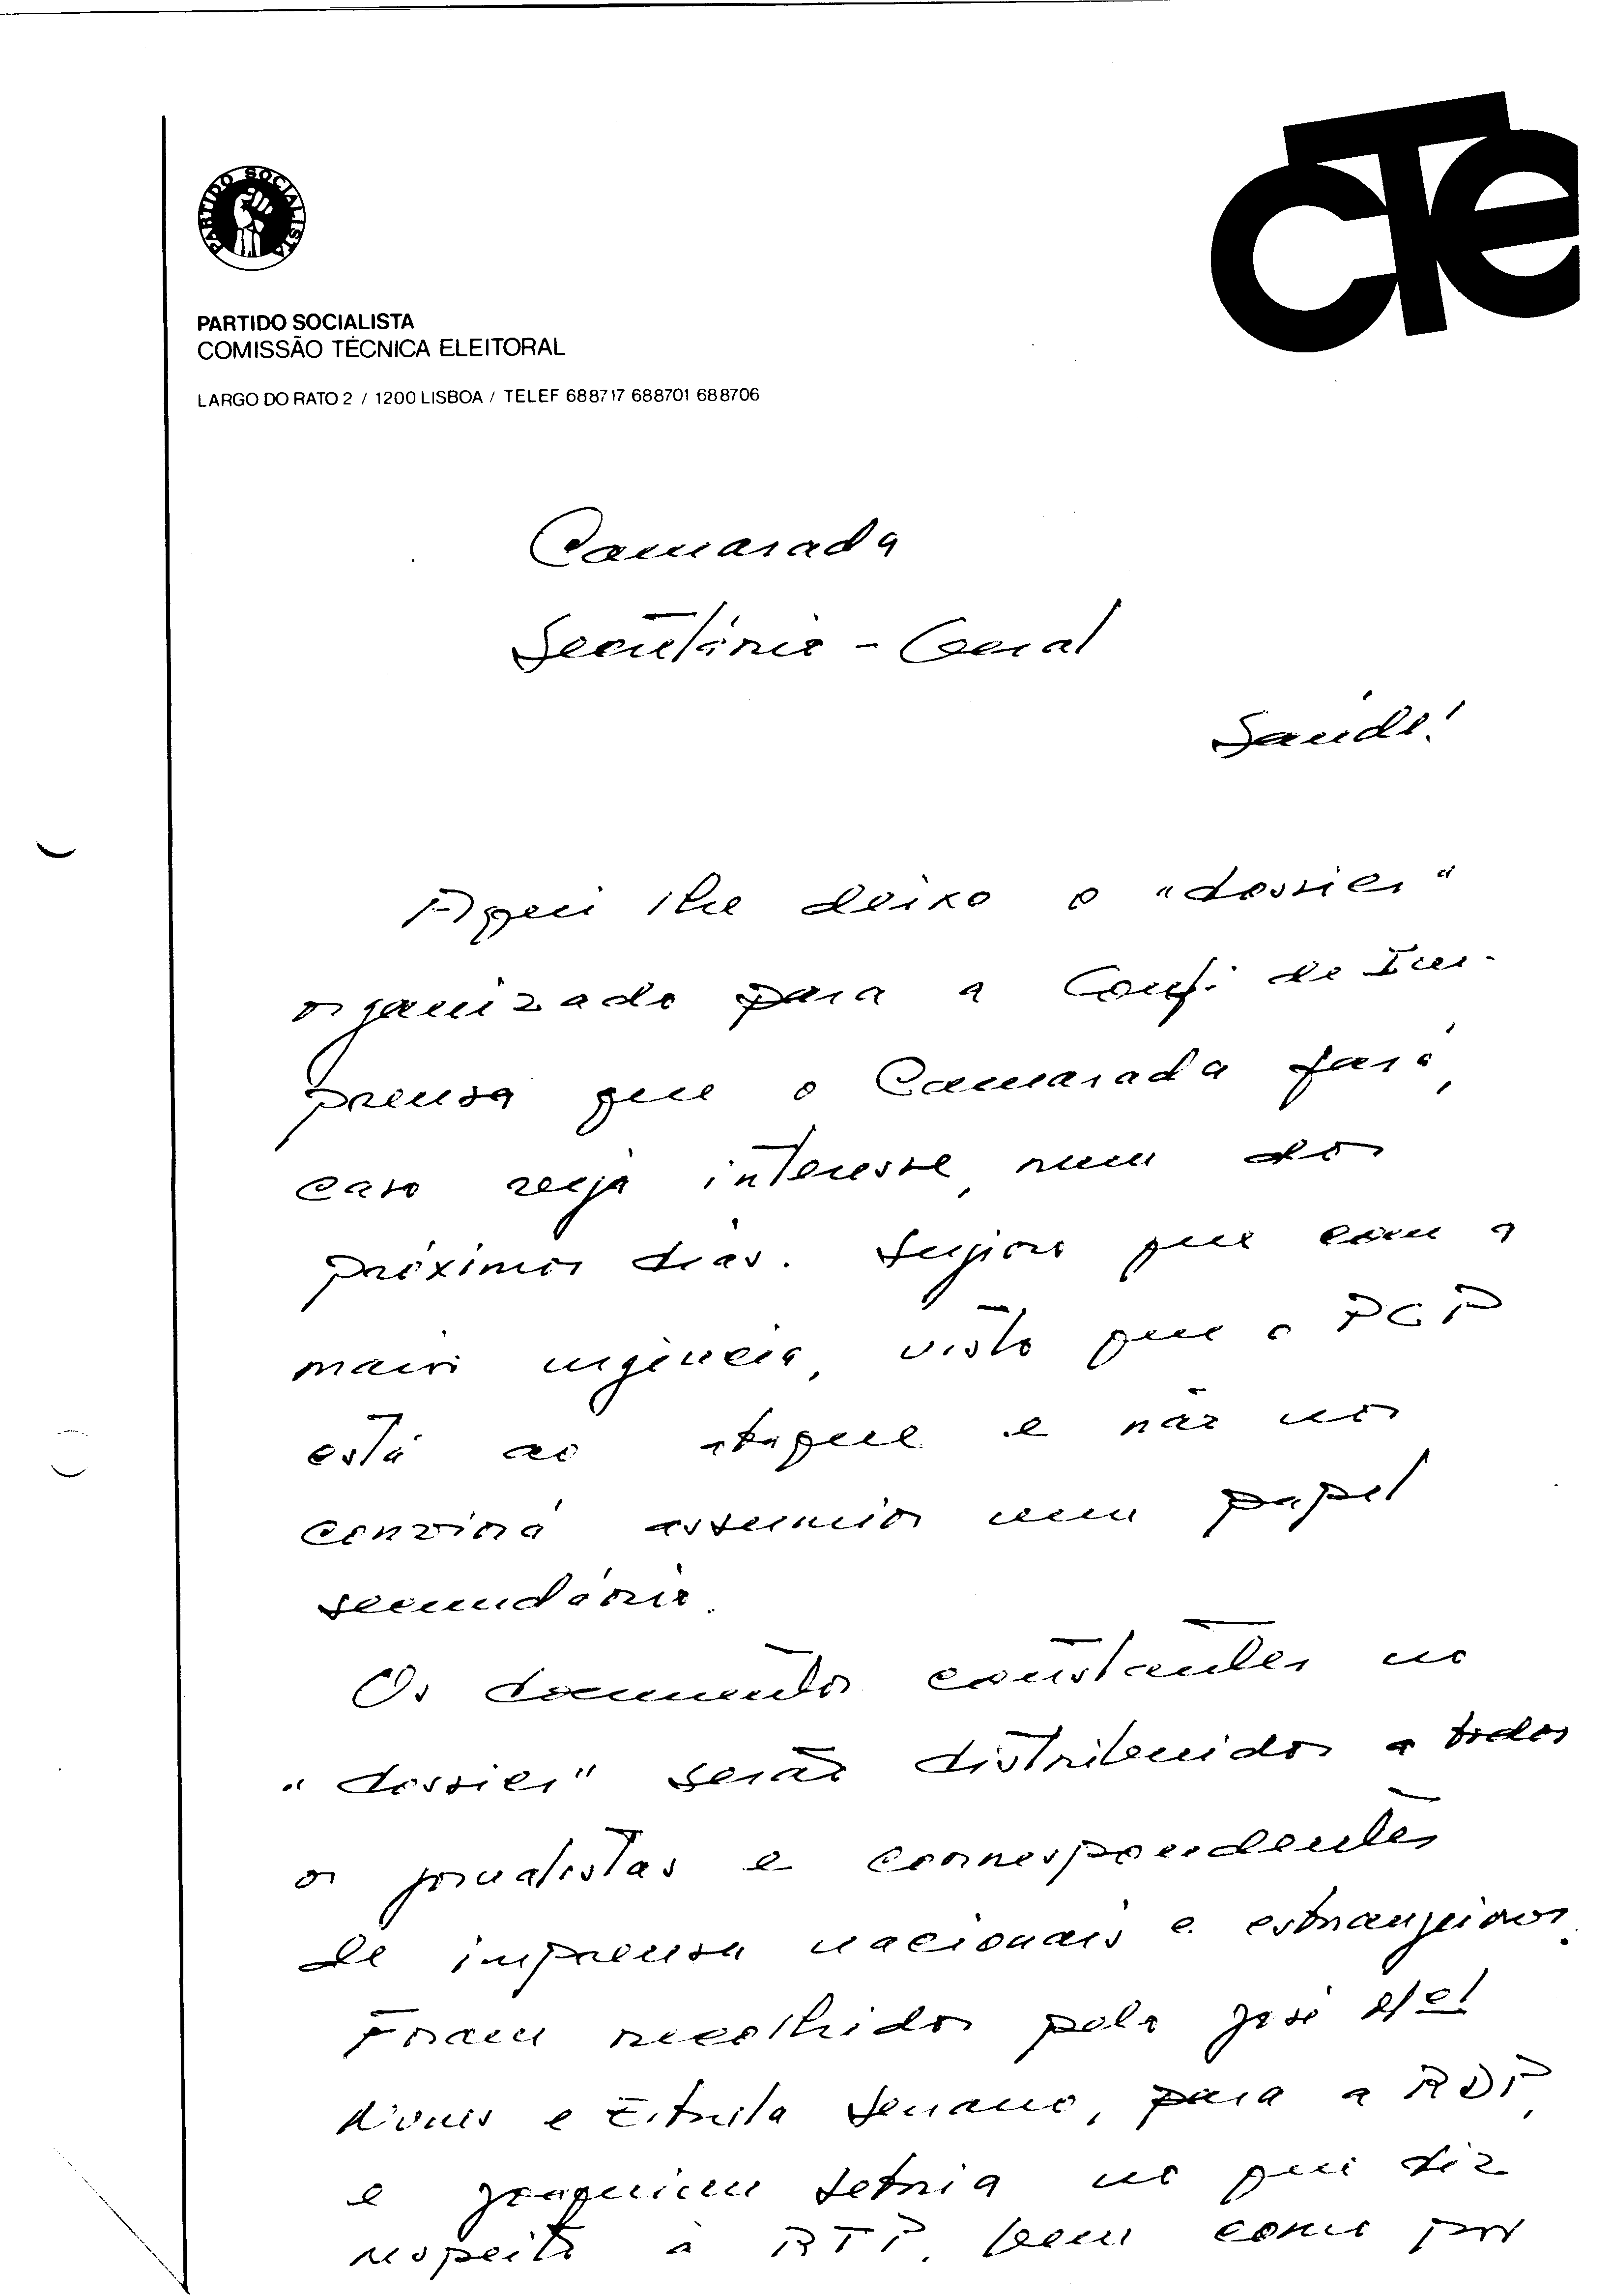 PARTIDO SOCIALISTA
CTE
PARTIDO SOCIALISTA
COMISSÃO TÉCNICA ELEITORAL
LARGO DO RATO 2 / 1200 LISBOA / TELEF. 688717 688701 688706
Camarada
Secretário-Geral
Saúde!
Aqui lhe deixo o "dossier"
organizado para a Conf. de Im-
prensa que o Camarada fará,
caso veja interesse, num dos
próximos dias. Sugiro que com a
maior urgência, visto que o PCP
está ao ataque e não nos
convirá assumir um papel
secundário.
Os documentos constantes no
"dossier" serão distribuidos a todos
os jornalistas e correspondentes
de imprensa nacionais e estrangeiros.
Foram recolhidos pelo José
e Estrela Serrano, para a RDP,
e Joaquim Letria no que diz
respeito à RTP, bem como por